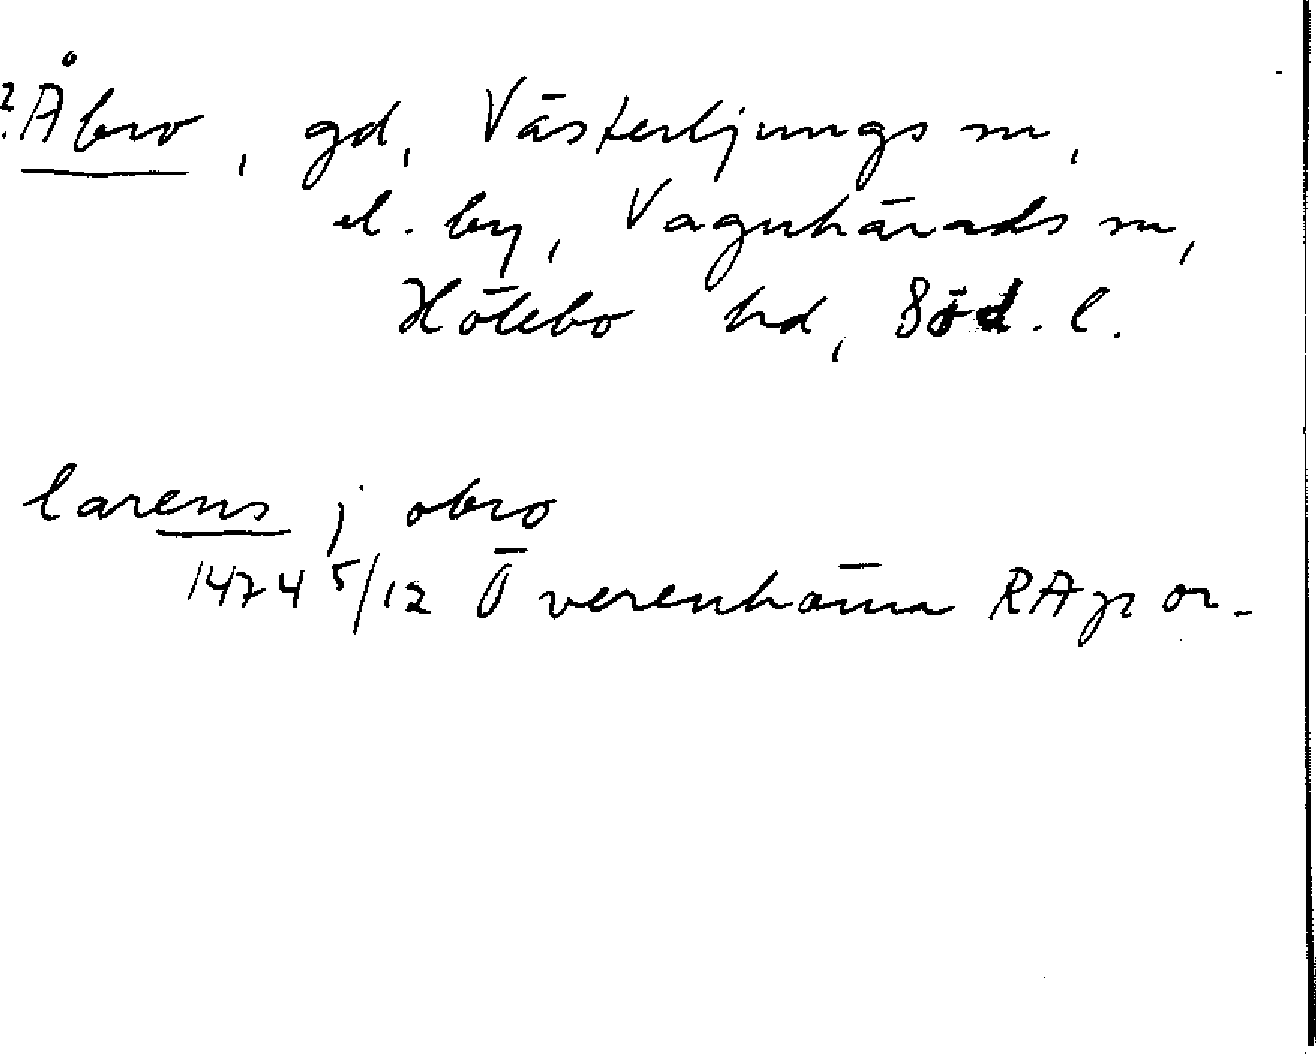 ?Åbro, gd, Västerljungs sn,
el. by, Vagnhärads sn,
Hölebo hd, Söd. l.
larens j obro
1474 5/12 Överenhörna RAp or.